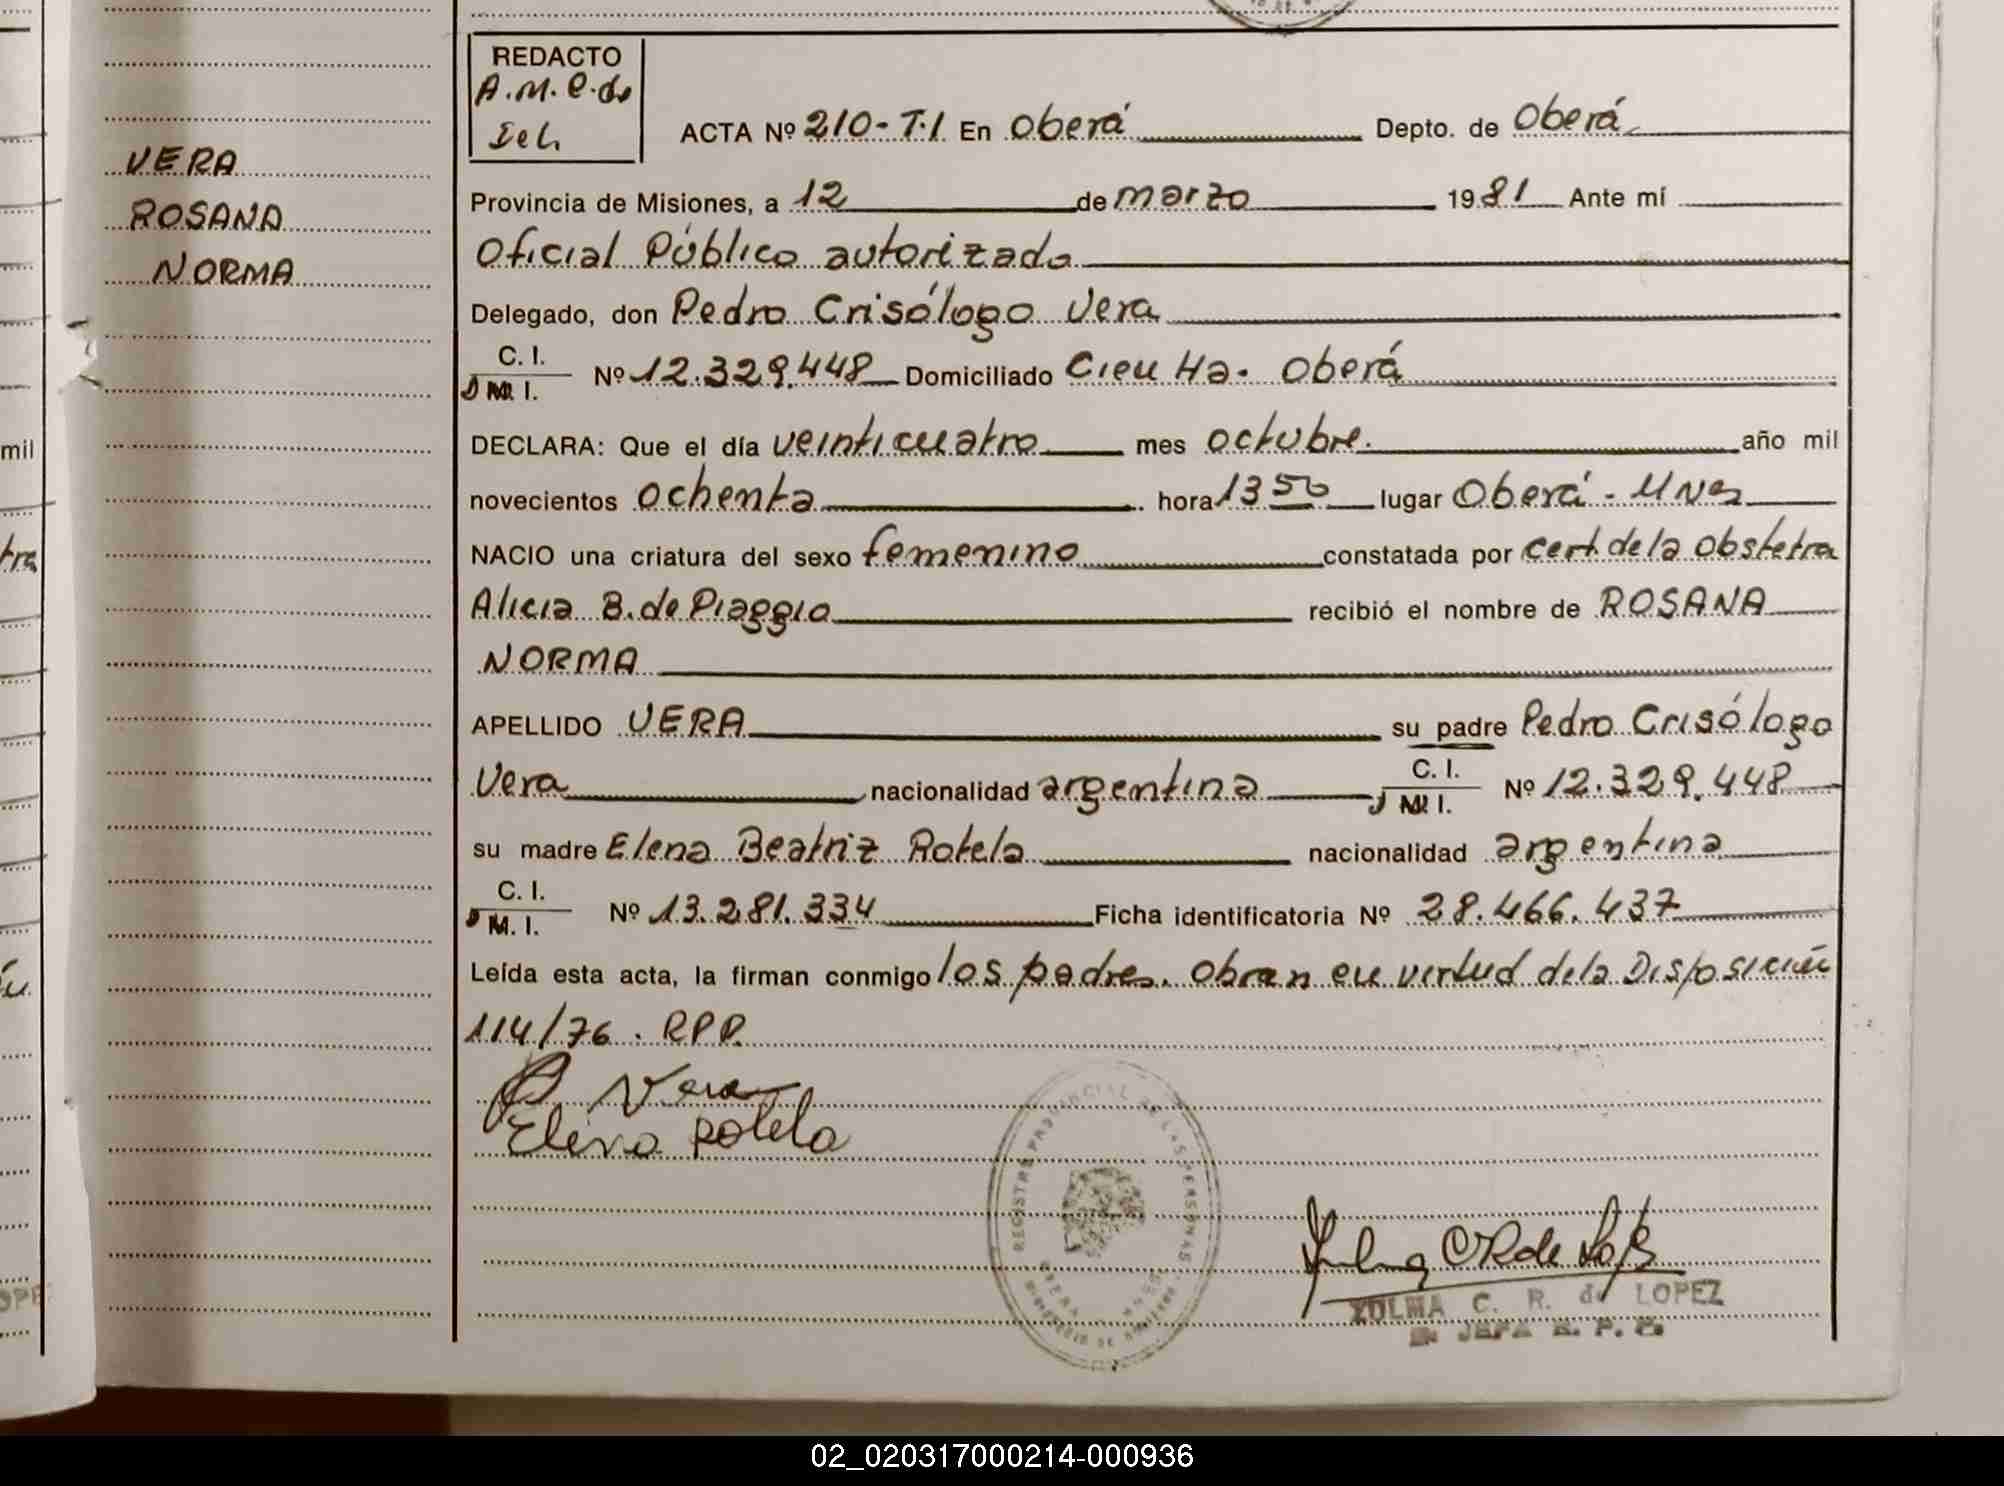 REDACTO
A.M.C.de
Deli
ACTA Nº 210-T.I En Oberá Depto. de Oberá
VERA
ROSANA
NORMA
Provincia de Misiones, a 12 de marzo 1981 Ante mí
Oficial Público autorizado
Delegado, don Pedro Crisólogo Vera
C. I.
D M. I. Nº 12.329.448 Domiciliado Cien Ha. Oberá
DECLARA: Que el día veinticuatro mes octubre. año mil
novecientos ochenta hora 13 50 lugar Oberá - Mnes
NACIO una criatura del sexo femenino constatada por cert. de la obstetra
Alicia B. de Piaggio recibió el nombre de ROSANA
NORMA
APELLIDO VERA su padre Pedro Crisólogo
Vera nacionalidad argentina C. I. M. I. Nº 12.329.448
su madre Elena Beatriz Rotela nacionalidad argentina
C. I.
M. I. Nº 13.281.334 Ficha identificatoria Nº 28.466.437
Leída esta acta, la firman conmigo los padres. Obran en virtud de la Disposición
114/76. RPP.
Vera
Elena Rotela
REGISTRO PROVINCIAL DE LAS PERSONAS
ZULMA C. R. de LOPEZ
JEFA R. P. P.
mil
02_020317000214-000936